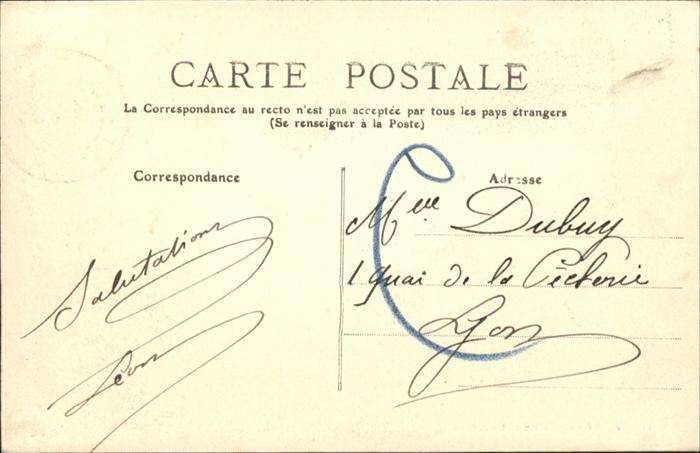 CARTE POSTALE
La Correspondance au recto n'est pas acceptée par tous les pays étrangers
(Se renseigner à la Poste)
Correspondance
Adresse
Salutations
Léon
Mlle Dubuy
1 quai de la Pècherie
Lyon